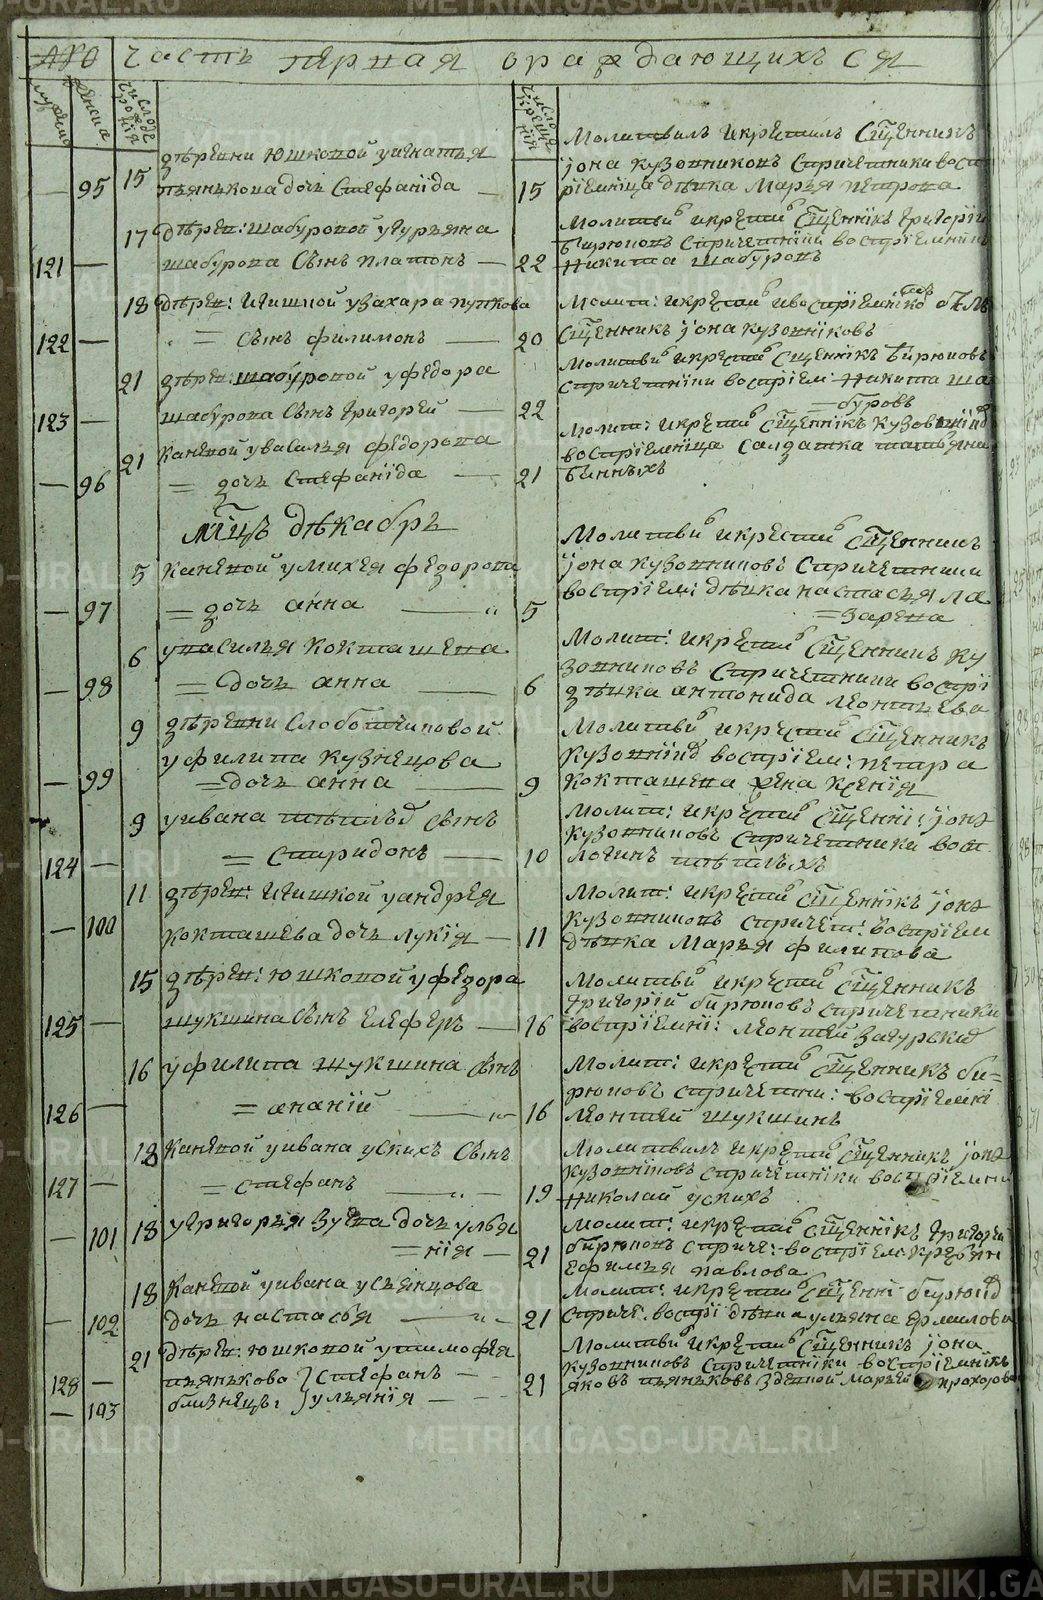 Часть первая о раждающихся
мужеска
женска
число рождения
число крещения
деревни Юшковой у Игнатья
95 15 Пьянкова дочь Стефанида 15
Молитвилъ и крестилъ священникъ
Iона Кузовниковъ с причетники восп
риемница девка Марья Петрова
17 дерев: Шабуровой у Гурьяна
121 Шабурова сынъ Платонъ 22
Молитви и крести священникъ Григорий
Бирюковъ с причетники восприемникъ
Никита Шабуровъ
18 дерев: Ичишной у Захара Пупкова
122 сынъ Филимонъ 20
Молит: и крести и восприемнико былъ
священникъ Iона Кузовниковъ
21 дерев: Шабуровой у Федора
123 Шабурова сынъ Григорей 22
Молитви и крести священникъ Бирюковъ
с причетники восприем: Никита Ша
буровъ
21 Каневой у Василья Федорова
96 дочь Стефанида 21
Молит: и крести священникъ Кузовников
восприемница салдатка Татьяна
мцъ декабрь
5 Каневой у Михея Федорова
97 дочь Анна 5
Молитви и крести священникъ
Iона Кузовниковъ с причетники
восприем: девка Настасья Ла
зарева
6 у Василья Кокташева
98 дочь Анна 6
Молит: и крести священникъ Ку
зовниковъ с причетники воспри
девка Антонида Леонтьева
9 деревни Слободчиковой
у Филипа Кузнецова
99 дочь Анна 9
Молитви и крести священникъ
Кузовников восприем: Петра
Кокташева жена Ксения
9 у Ивана сынъ
124 Спиридонъ 10
Молит: и крести священни: Iона
Кузовниковъ с причетники восп
Логинъ
11 дерев: Ичишкой у Андрея
100 Кокташева дочь Лукия 11
Молит: и крести священникъ Iона
Кузовниковъ с причет: восприем
девка Марья Филипова
15 дерев: Юшковой у Федора
125 Шукшина сынъ Елеферъ 16
Молитви и крести священникъ
Григорий Бирюковъ с причетники
восприемни: Леонтей Загурских
16 у Филипа Шукшина сынъ
126 Ананий 16
Молит: и крести священникъ Би-
рюковъ с причетни: восприемни
Леонтей Шукшинъ
18 Каневой у Ивана Ускихъ сынъ
127 Стефанъ 19
Молитвилъ и крести священникъ Iона
Кузовниковъ с причетники восприемни
Николай Ускихъ
101 18 у Григорья Зуева дочь Улья
ния 21
Молит: и крести священникъ Григорей
Бирюковъ с приче: восприем:
Ефимья Павлова
18 Каневой у Ивана Усьянцова
102 дочь Настасья 21
Молит: и крести священни Бирюков
с приче. воспри девка Ульяна Ермилова
21 дерев: Юшковой у Тимофея
128 Пьянкова Стефанъ 21
103 близнецы Ульяния
Молитви и крести священникъ Iона
Кузовниковъ с причетники восприемникъ
Яковъ Пьянковъ з девкой Марьей Прохорово
METRIKI.GASO-URAL.RU